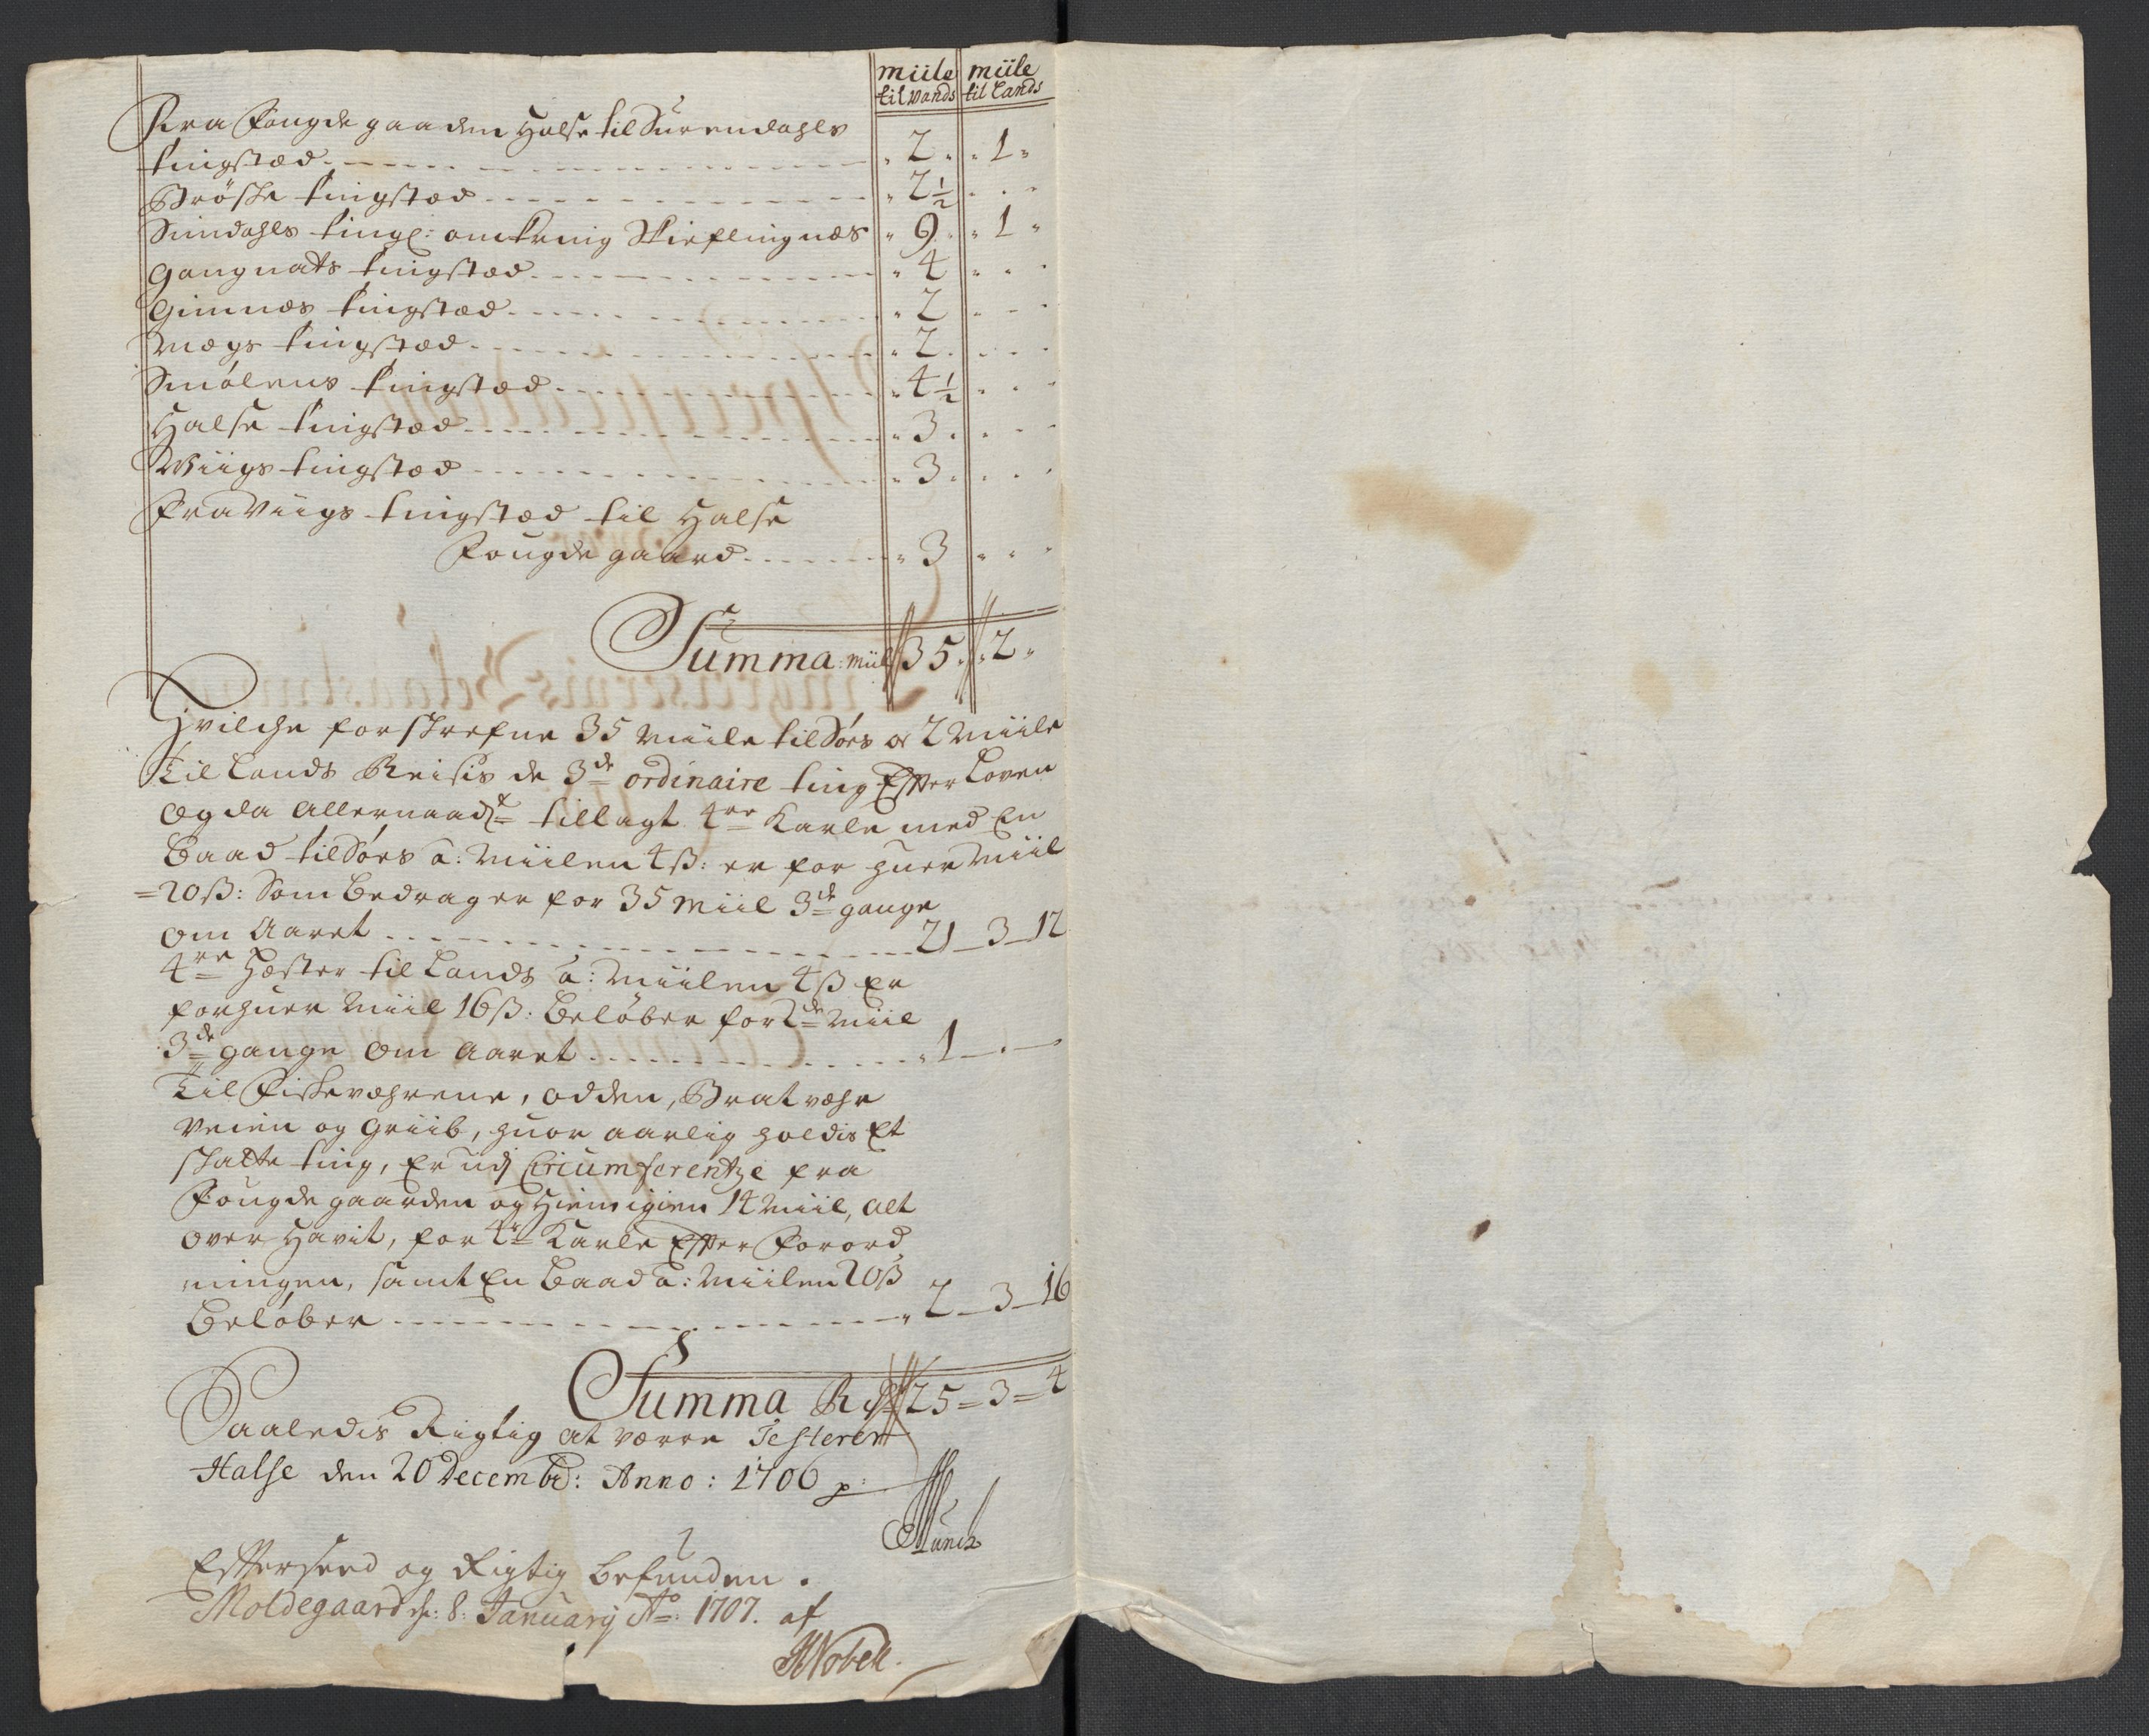 miile miile
til vands til Lands
Fra Fougde gaarden Halse til Surendahls
tingstæd 2 1
Brøske tingstæd 2½
Sundahls ting: omkring Skieflingnæs 9 1
Gangnats tingstæd 4
Gimnæs tingstæd 2
Mægs tingstæd 2
Smølens tingstæd 4½
Halse tingstæd 3
Wiigs tingstæd 3
Fra Viigs tingstæd til Halse
Fougde gaard 3
Summa: miil 35 2
Hvilche forskrefne 35 Miile til Søes og 2 Miile
til Lands Reisis de 3de ordinaire ting Effter Loven
Og da Allernaadt tillagt 4re Karle med En
Baad til Søes a: Miilen 4 ß: er for huer Miil
20 ß: Som bedrager for 35 Miil 3de gange
om Aaret 21 3 12
4re Hester til Lands a: Miilen 4 ß Er
for huer Miil 16 ß: beløber for 2de Miil
3de gange om aaret 1
Til Fiskeværene, Odden, Brat væhr
Veien og Griib, huor aarlig holdis Et
skatte ting, Er udj Circumferentze fra
Fougde gaarden og Hiem igien 14 Miil, alt
over Havit, for 4re Karle Effter Forord,,
ningen, samt En Baad a: Miilen 20 ß
beløber 2 3 16
Summa Rdr 25 = 3 = 4
Saaledis Rigtig at være Testerer
Halse den 20 Decembr: Anno: 1706 p:
Munch
Effterseed og Rigtig befunden.
Moldegaard d: 8: January Ao: 1707. af
HNobell.